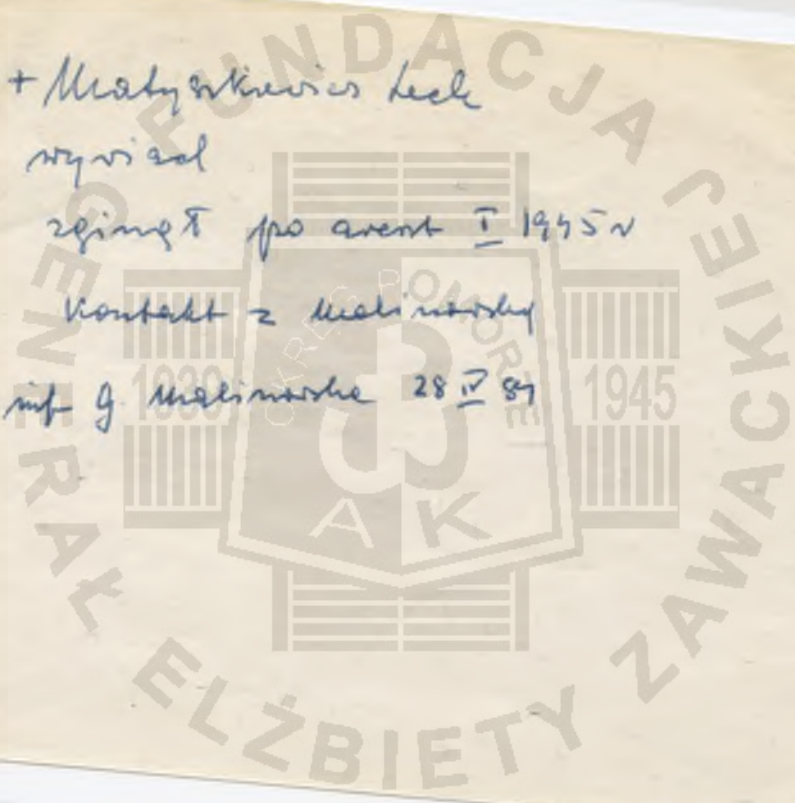 + Matyszkiewicz Lech
wywiad
zginął po areszt I 1945 r
kontakt z Malinowską
inf G. Malinowska 28 IV 89
FUNDACJA GENERAŁ ELŻBIETY ZAWACKIEJ
OKRĘG POMORZE
1939 1945
AK